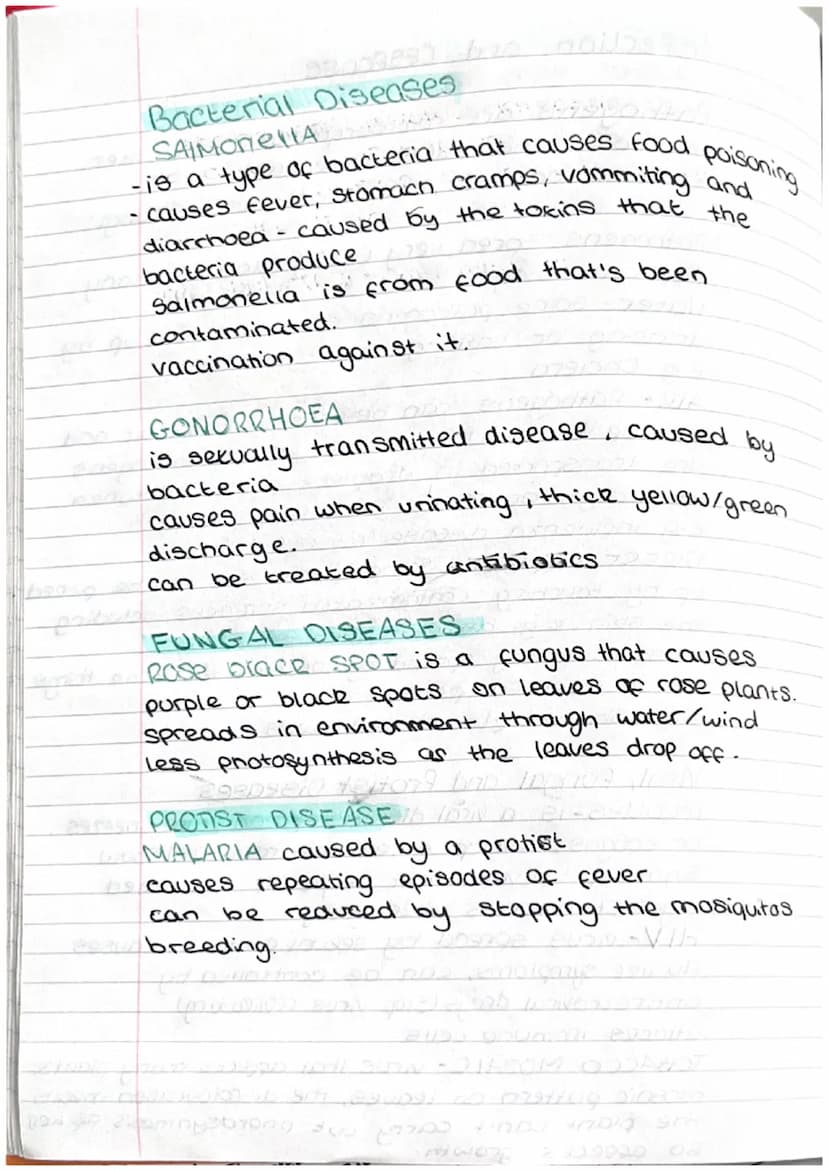 Bacterial Diseases
SAlMonellA
-is a type of bacteria that causes food poisoning
- causes fever, stomach cramps, vommiting and
diarrhoea - caused by the toxins that the
bacteria produce
salmonella is from food that's been
contaminated.
vaccination against it.
GONORRHOEA
is sexually transmitted disease, caused by
bacteria
causes pain when urinating, thick yellow/green
discharge.
can be treated by antibiotics
FUNGAL DISEASES
ROSE black SPOT is a fungus that causes
purple or black spots on leaves of rose plants.
spreads in environment through water/wind
less photosynthesis as the leaves drop off.
PROTIST DISEASE
MALARIA caused by a protist
causes repeating episodes of fever
can be reduced by stopping the mosiquitos
breeding.